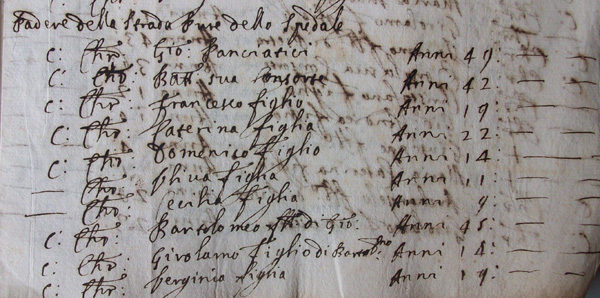 Podere della Strada Pure dello Spedale
C: Chr: Gio: Panciatici Anni 49: — —
C: Chr: Batta sua Consorte Anni 42 — —
C: Chr: Francesco figlio Anni 19 — —
C: Chr: Caterina figlia Anni 22: — —
C: Chr: Domenico figlio Anni 14 — —
— Chr: Oliva figlia Anni 11: — —
— Chr: Cecilia figlia Anni 9 — —
C: Chr: Bartolomeo di Gio: Anni 45 — —
C: Chr: Girolamo figlio di Bartolomeo Anni 18: — —
C: Chr: Verginia figlia Anni 19: — —